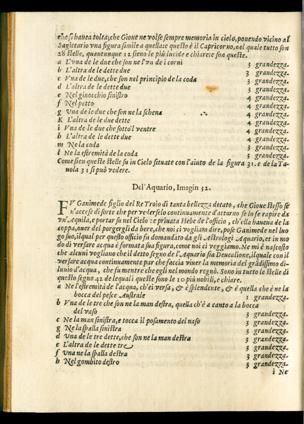 che si havea tolta, che Giove ne volse sempre memoria in cielo, ponendo vicino al
Sagittario una figura simile a quella: e questo è il Capricorno, nel quale tutto son
28 stelle, quantunque 12 sieno le più lucide e chiare e son queste.
a L'una de le due che son ne l'un de le corna 3 grandezza.
b L'altra de le dette due 3 grandezza.
c Una de le due, che son nel principio de la coda 3 grandezza.
d L'altra de le dette due 3 grandezza.
e Nel ginocchio sinistro 4 grandezza.
f Nel petto 4 grandezza.
g Una de le due che son ne la schena 4 grandezza.
K L'altra de le due dette 4 grandezza.
i Una de le due che son sotto'l ventre 4 grandezza.
h L'altra de le dette due 4 grandezza.
m Ne la coda 3 grandezza.
l Ne la estremità de la coda 3 grandezza.
Come sien queste stelle su in Cielo situate con l'aiuto de la figura 31. e de la Ta-
vola 31 si può vedere.
Del'Aquario, Imagin 32.
FV Ganimede figlio del Re Troio di tanta bellezza dotato, che Giove stesso se
n'accese di sorte che per vederselo continuamente d'attorno se lo fe rapire da
un'Aquila, e portar su nel Cielo: e privata Hebe de l'officio, ch'ella haveva de la
coppa, over del porgergli da bere, che noi vogliam dire, pose Ganimede nel luo
go suo, il qual per questo officio fu domandato da gli Astrologi Aquario, et in mo
do di versare acqua è formata la sua figura, come noi veggiamo. Ne mi è nascosto
che alcuni vogliono che il detto segno de l'Aquario sia Deucalione, il quale con il
versare acqua continuamente par che faccia vivere la memoria del grandissimo di-
luvio d'acqua, che fu mentre che egli nel mondo regnò. Sono in tutto le stelle di
questo segno 42 de le quali queste sono le 10 più nobili, e chiare.
a Ne l'estremità de l'acqua, ch'ei versa, & è splendente, & è quella che è ne la
bocca del pesce Australe 1 grandezza.
b Una de le tre che son ne la man destra, quella ch'è a canto a la bocca
del vaso 3 grandezza.
c Ne la man sinistra, e tocca il posamento del vaso 3 grandezza.
g Ne la spalla sinistra 3 grandezza.
d Una de le tre dette, che son ne la man destra 3 grandezza.
e L'altra de le dette tre 3 grandezza.
f Una ne la spalla destra 3 grandezza.
h Nel gombito destro 3 grandezza.
i Ne